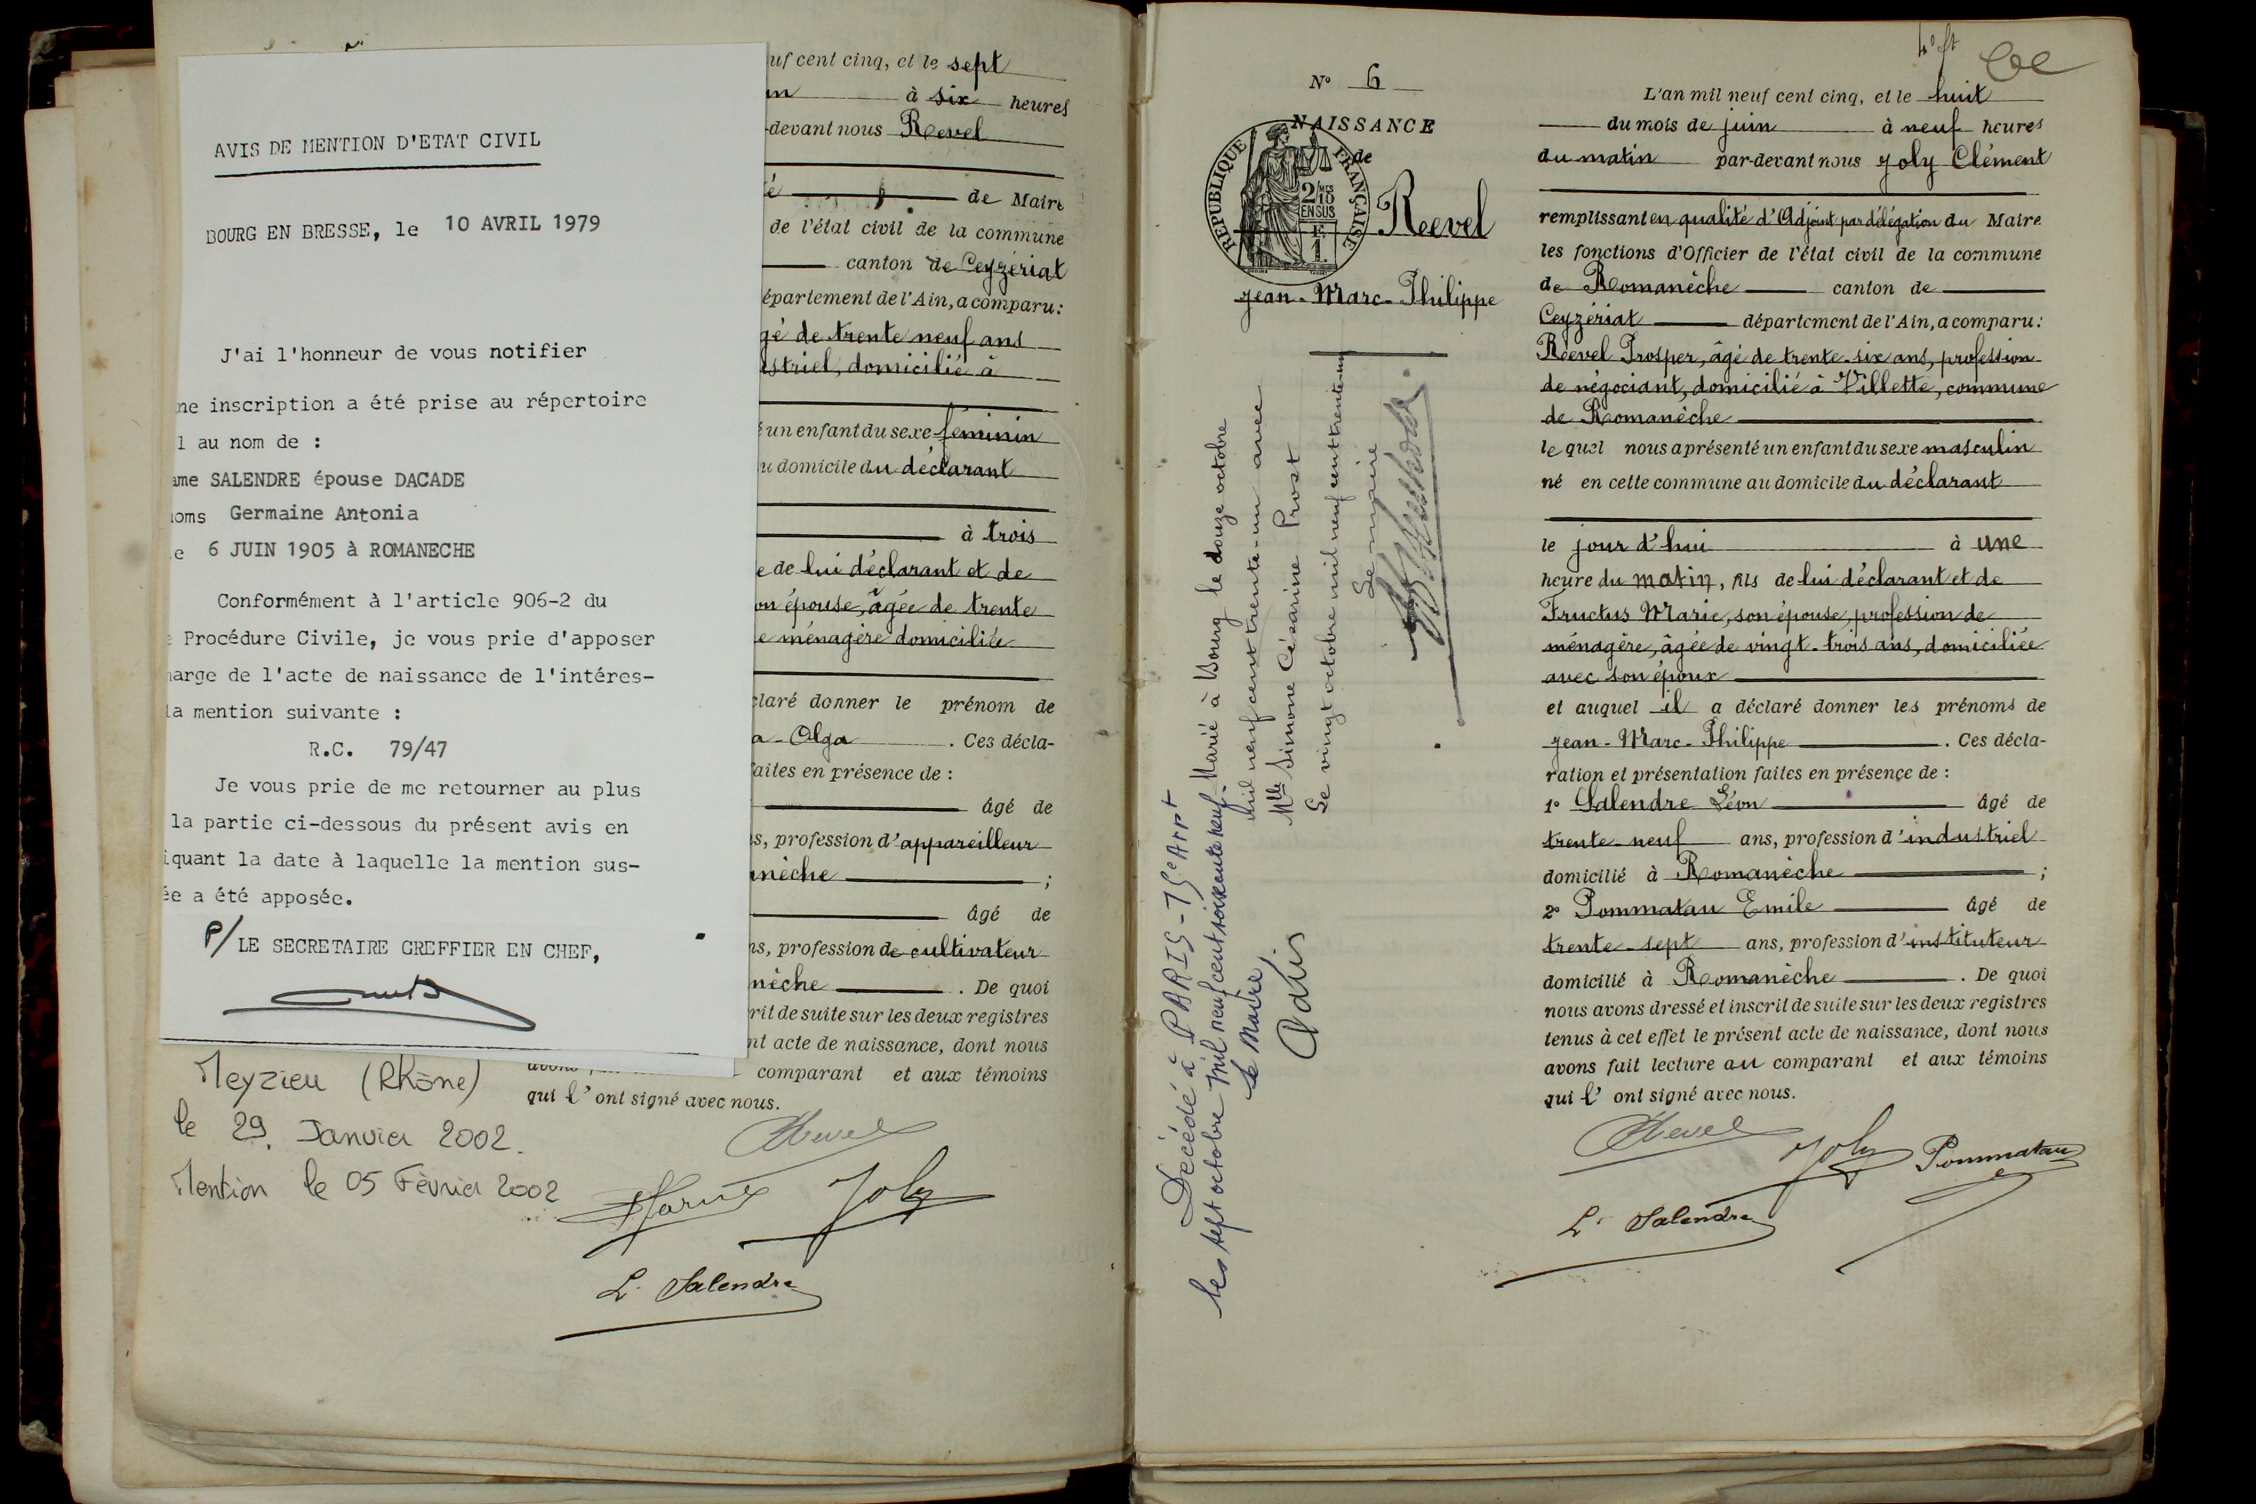 AVIS DE MENTION D'ETAT CIVIL
BOURG EN BRESSE, le 10 AVRIL 1979
J'ai l'honneur de vous notifier
ne inscription a été prise au répertoire
l au nom de :
ame SALENDRE épouse DACADE
noms Germaine Antonia
e 6 JUIN 1905 à ROMANECHE
Conformément à l'article 906-2 du
e Procédure Civile, je vous prie d'apposer
marge de l'acte de naissance de l'intéres-
la mention suivante :
R.C. 79/47
Je vous prie de me retourner au plus
la partie ci-dessous du présent avis en
iquant la date à laquelle la mention sus-
ée a été apposée.
P/ LE SECRETAIRE GREFFIER EN CHEF,
Meyzieu (Rhône)
le 29 Janvier 2002.
Mention le 05 Février 2002
uf cent cinq, et le sept
in à six heures
-devant nous Reevel
té de Maire
de l'état civil de la commune
canton de Ceyzériat
épartement de l'Ain, a comparu :
gé de trente neuf ans
ustriel, domicilié à
é un enfant du sexe féminin
u domicile du déclarant
à trois
e de lui déclarant et de
on épouse, âgée de trente
e ménagère domiciliée
claré donner le prénom de
a-Olga. Ces décla-
faites en présence de :
âgé de
ns, profession d'appareilleur
anèche ;
âgé de
ns, profession de cultivateur
nèche. De quoi
rit de suite sur les deux registres
nt acte de naissance, dont nous
comparant et aux témoins
qui l'ont signé avec nous.
Reevel
Joly
L. Salendre
N° 6
NAISSANCE
de
REPUBLIQUE FRANÇAISE
2/10 MES
EN SUS
F.
1.
Reevel
Jean-Marc-Philippe
Marié à Bourg le douze octobre
mil neuf cent trente-un avec
Mlle Simone Césarine Prost
Le vingt octobre mil neuf cent trente-un
Le maire
Décédé à PARIS-15e Arrt
les sept octobre mil neuf cent soixante neuf.
Le Maire,
4° ft
L'an mil neuf cent cinq, et le huit
du mois de juin à neuf heures
du matin par-devant nous Joly Clément
remplissant en qualité d'Adjoint par délégation du Maire
les fonctions d'Officier de l'état civil de la commune
de Romanèche canton de
Ceyzériat département de l'Ain, a comparu :
Reevel Prosper, âgé de trente-six ans, profession
de négociant, domicilié à Villette, commune
de Romanèche
lequel nous a présenté un enfant du sexe masculin
né en cette commune au domicile du déclarant
le jour d'hui à une
heure du matin, fils de lui déclarant et de
Fructus Marie, son épouse, profession de
ménagère, âgée de vingt-trois ans, domiciliée
avec son époux
et auquel il a déclaré donner les prénoms de
Jean-Marc-Philippe. Ces décla-
ration et présentation faites en présence de :
1° Salendre Léon âgé de
trente-neuf ans, profession d'industriel
domicilié à Romanèche ;
2° Pommatau Emile âgé de
trente-sept ans, profession d'instituteur
domicilié à Romanèche. De quoi
nous avons dressé et inscrit de suite sur les deux registres
tenus à cet effet le présent acte de naissance, dont nous
avons fait lecture au comparant et aux témoins
qui l'ont signé avec nous.
Reevel
Joly
Pommatau
L. Salendre